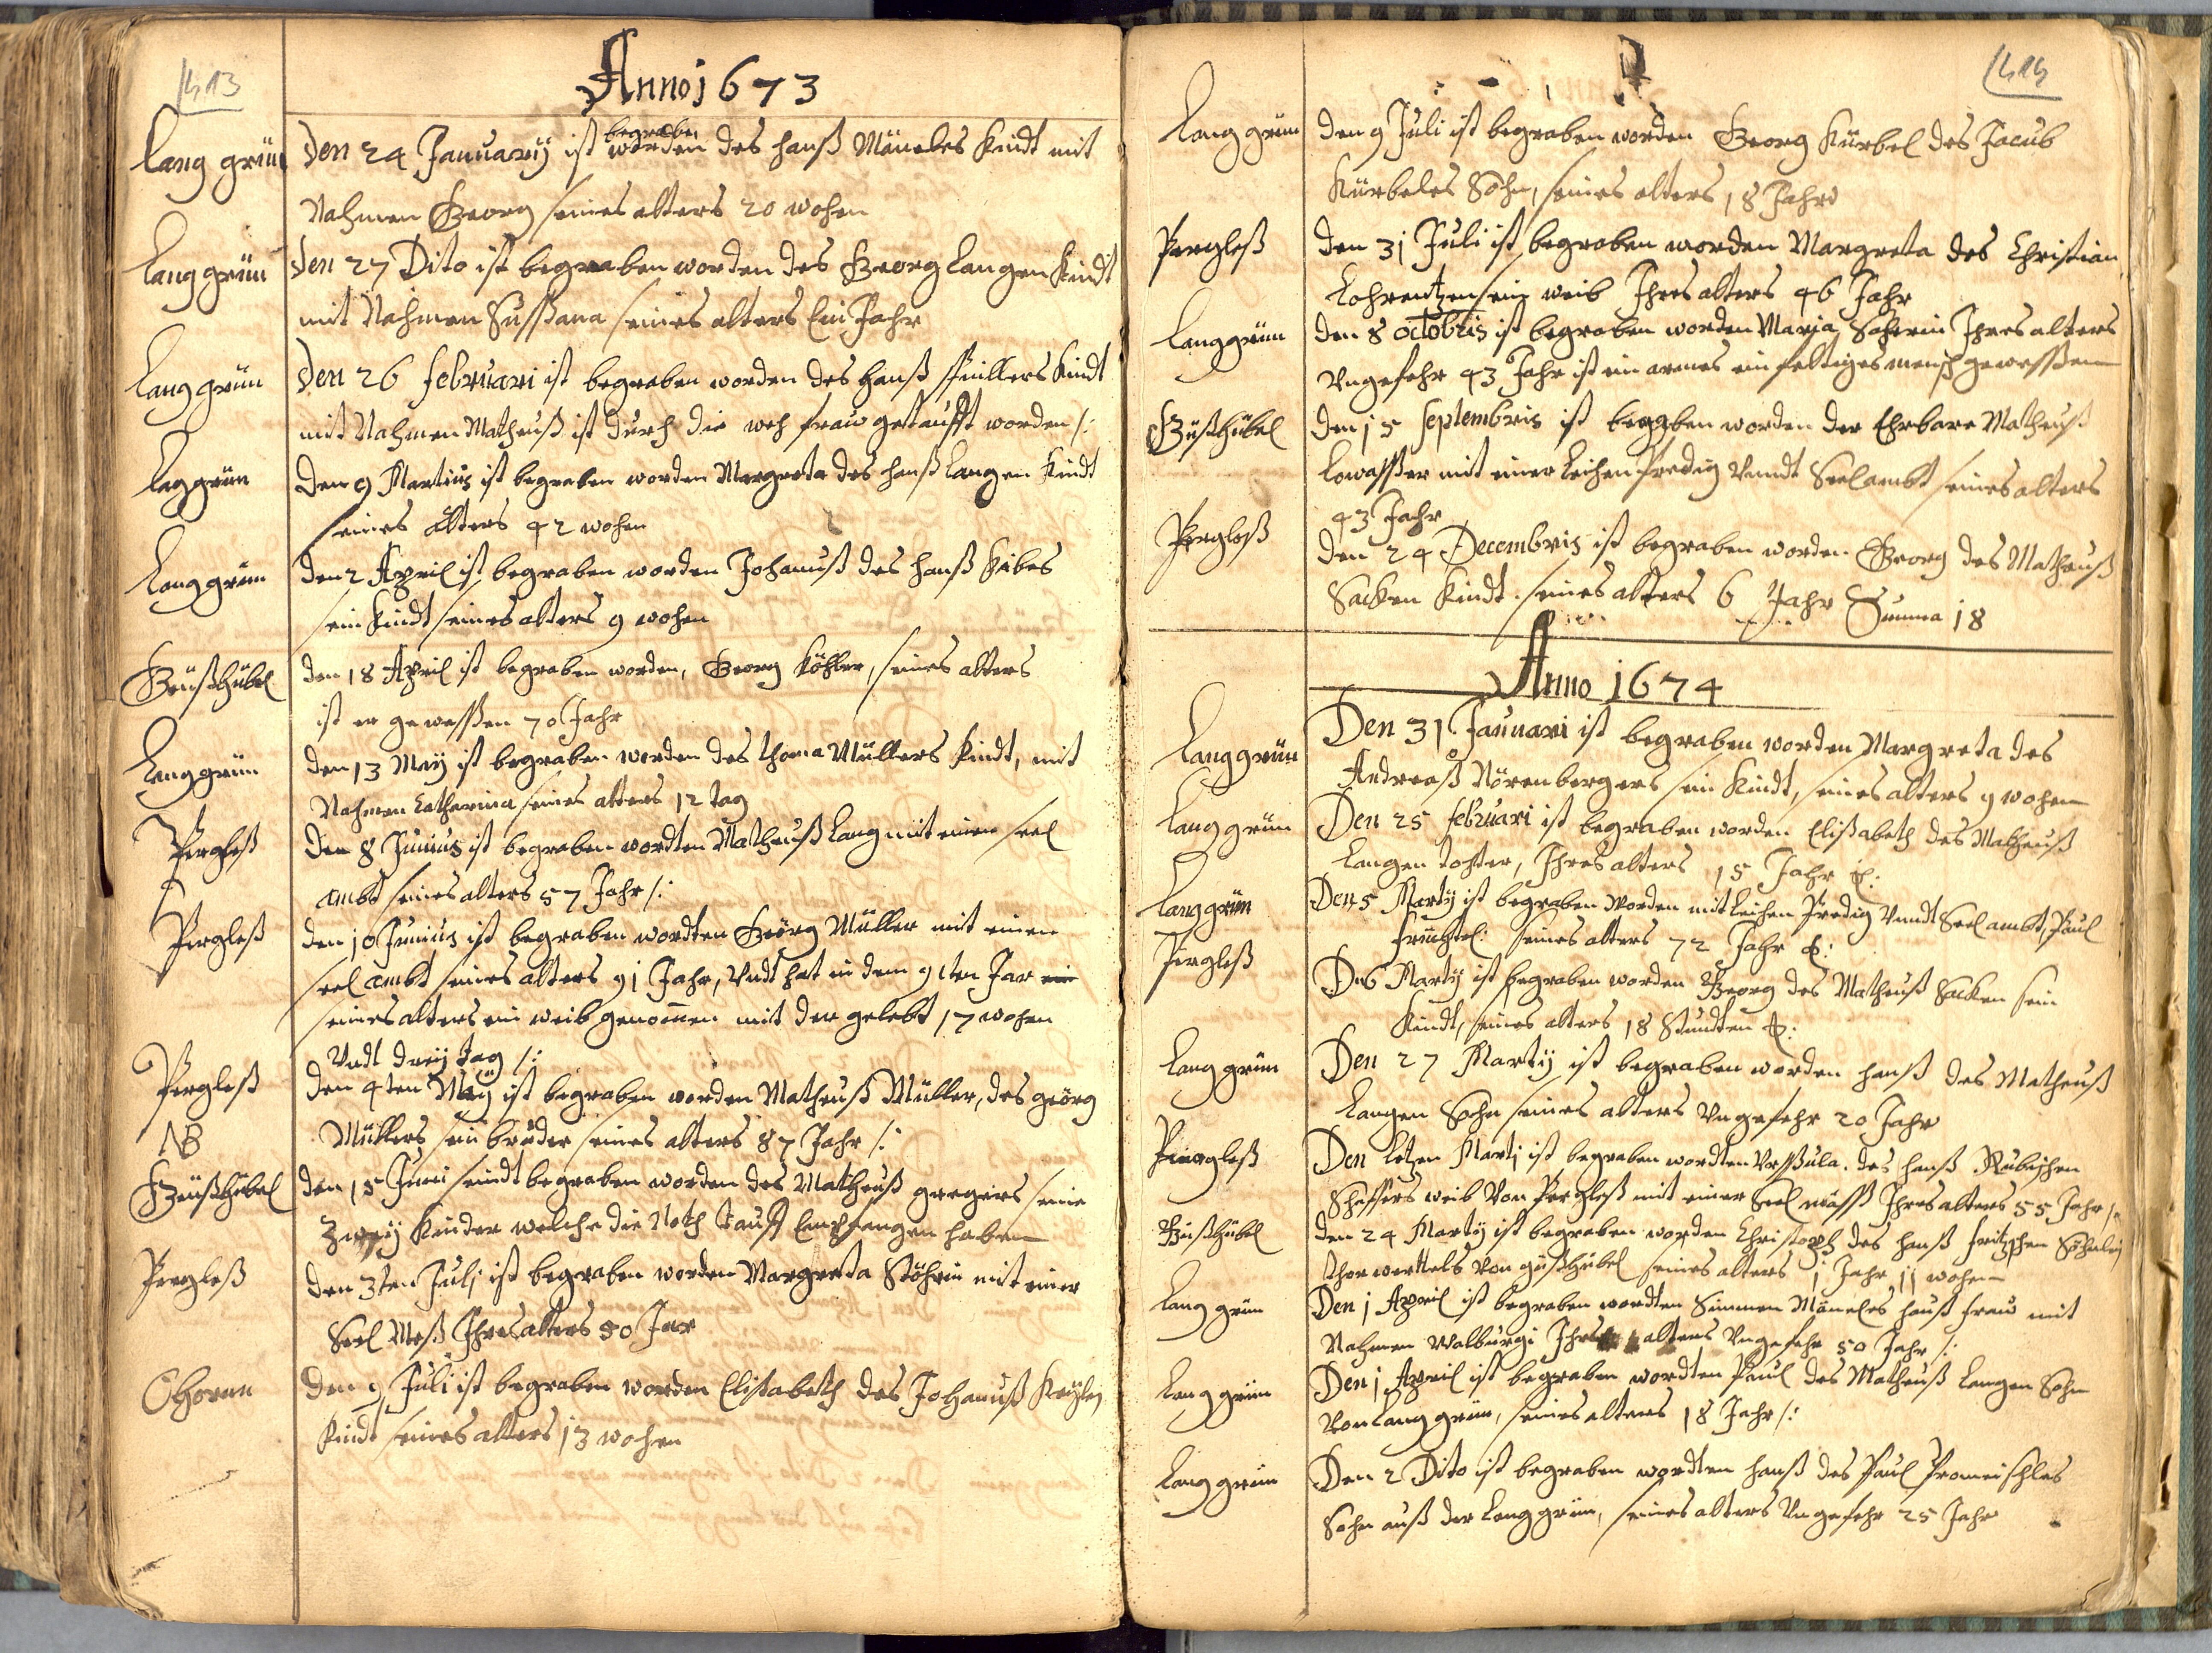 413
Anno 1673
Lang grün Den 24 January ist begraben worden des hanß Mäneles Kindt mit
Nahmen Georg seines alters 20 wohen
Lang grün Den 27 Dito ist begraben worden des Georg Langen Kindt
mit Nahmen Sussana seines alters Ein Jahr
Lang grün Den 26 februari ist begraben worden des Hanß Kindt
mit Nahmen Matheuß ist durch die weh frauw getaufft worden /:
Laggrün Den 9 Martius ist begraben worden Margreta des hanß Langen Kindt
seines alters 42 wohen
Langgrün den 2 April ist begraben worden Johanuß des hanß
sein Kindt seines alters 9 wohen
Geußhübel den 18 April ist begraben worden, Georg Köhler, seines alters
ist er gewessen 70 Jahr
Langgrün den 13 Maÿ ist begraben worden des thoma Müllers Kindt, mit
Nahmen Catharina seines alters 12 tag
Pergleß Den 8 Junius ist begraben wordten Matheuß Lang mit einen seel
ambt seines alters 57 Jahr /:
Pergleß den 10 Junius ist begraben wordten Geörg Müller mit einen
seel ambt seines alters 91 Jahr, Vndt hat in dem 91ten Jar
seines alters ein weib genommen mit der gelebt 17 wohen
Vndt dreÿ tag /:
Pergleß den 4ten Maÿ ist begraben worden Matheuß Müller, des geörg
NB Müllers sein bruder seines alters 87 Jahr /:
Geußhübel den 15 Juni seindt begraben worden des Matheuß gregers seine
Zweÿ Kinder welche die Noth tauff Empfangen haben
Pergleß den 3ten Julj ist begraben worden Margreta Stöhrin mit einer
Seel Meß Ihres alters 50 Jar
Ohorn den 9 Juli ist begraben worden Elisabeth des Johanuß
Kindt seines alters 13 wohen
414
Lang grün den 9 Juli ist begraben worden Georg Kürbel des Jacub
Kürbeles Sohn, seines alters 18 Jahr
Pergleß den 31 Juli ist begraben worden Margreta des Christian
Lohrentzen sein weib Ihres alters 46 Jahr
Langgrün den 8 octobris ist begraben worden Maria Ihres alters
Vngefehr 43 Jahr ist ein armes einfeltiges mensch gewessen
Güßhübel den 15 Septembris ist begraben worden der Ehrbare Matheuß
mit einer Leihen Predig Vnndt Seel ambt seines alters
43 Jahr
Pergleß den 24 Decembris ist begraben worden Georg des Matheuß
Sacken Kindt. seines alters 6 Jahr Summa 18
Anno 1674
Langgrün Den 31 Januari ist begraben worden Margreta des
Andreaß Nörenbergers sein Kindt, seines alters 9 wohen
Lang grün Den 25 februari ist begraben worden Elisabeth des Matheuß
Langen tohter, Ihres alters 15 Jahr
Lang grün Den 5 Martÿ ist begraben worden mit Leihen Predig Vnndt Seel ambt, Paul
seines alters 72 Jahr
Pergleß Den 6 Martÿ ist begraben worden Georg des Matheuß Sacken sein
Kindt, seines alters 18 Stundten
Lang grün Den 27 Martÿ ist begraben worden hanß des Matheuß
Langen Sohn seines alters Vngefehr 20 Jahr
Piergleß Den Letzen Martj ist begraben wordten Vrssula. des hanß
Scheffers weib Von Pergleß mit einer Seel mässß Ihres alters 55 Jahr /:
Güßhübel den 24 Martÿ ist begraben worden Christoph des hanß fritzschen Söhnlein
Von güßhübel seines alters 1 Jahr 11 wohen
Lang grün Den 1 April ist begraben wordten Simmen Mäneles hauß frauw mit
Nahmen Walburgi Ihres alters Vngefehr 50 Jahr /:
Lang grün Den 1 April ist begraben wordten Paul des Matheuß Langen Sohn
Von Lang grün, seines alters 18 Jahr /:
Lang grün Den 2 Dito ist begraben wordten hanß des Paul
Sohn auß der Lang grün, seines alters Vngefehr 25 Jahr